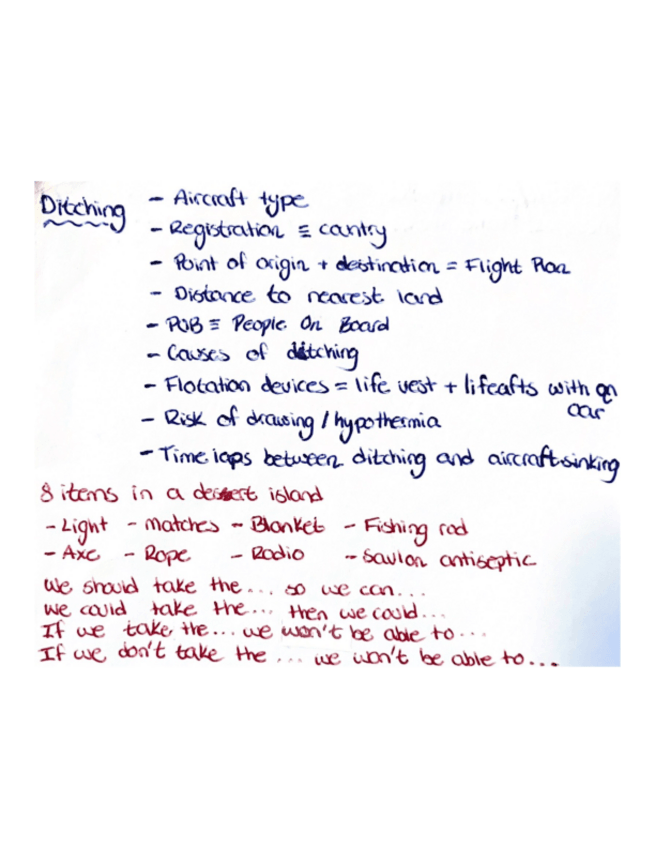 Ditching - Aircraft type
- Registration ≡ cantry
- Point of origin + destination = Flight Plan
- Distance to nearest land
- POB ≡ People On Board
- Causes of ditching
- Flotation devices = life vest + lifeafts with an
oar
- Risk of drawing / hypothermia
- Time laps between ditching and aircraft sinking
8 items in a dessert island
- Light - matches - Blanket - Fishing rod
- Axe - Rope - Radio - Savlon antiseptic
We should take the... so we can...
We could take the... then we could...
If we take the... we won't be able to...
If we don't take the ... we won't be able to...